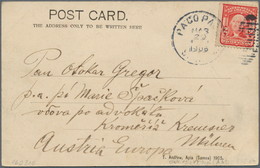 POST CARD.
THE ADDRESS ONLY TO BE WRITTEN HERE
PAGO PA
Pan Otokar Gregor
p. a. pí Marie Špačková
vdova po advokátu
Kroměříž Kremsier
Austria Europa
T. Andrew, Apia (Samoa)